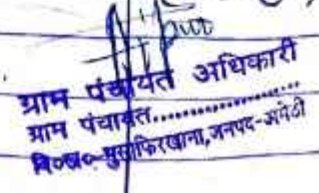 ग्राम पंचायत अधिकारी
ग्राम पंचायत..................
वि०ख०-मुसाफिरखाना, जनपद-अमेठी